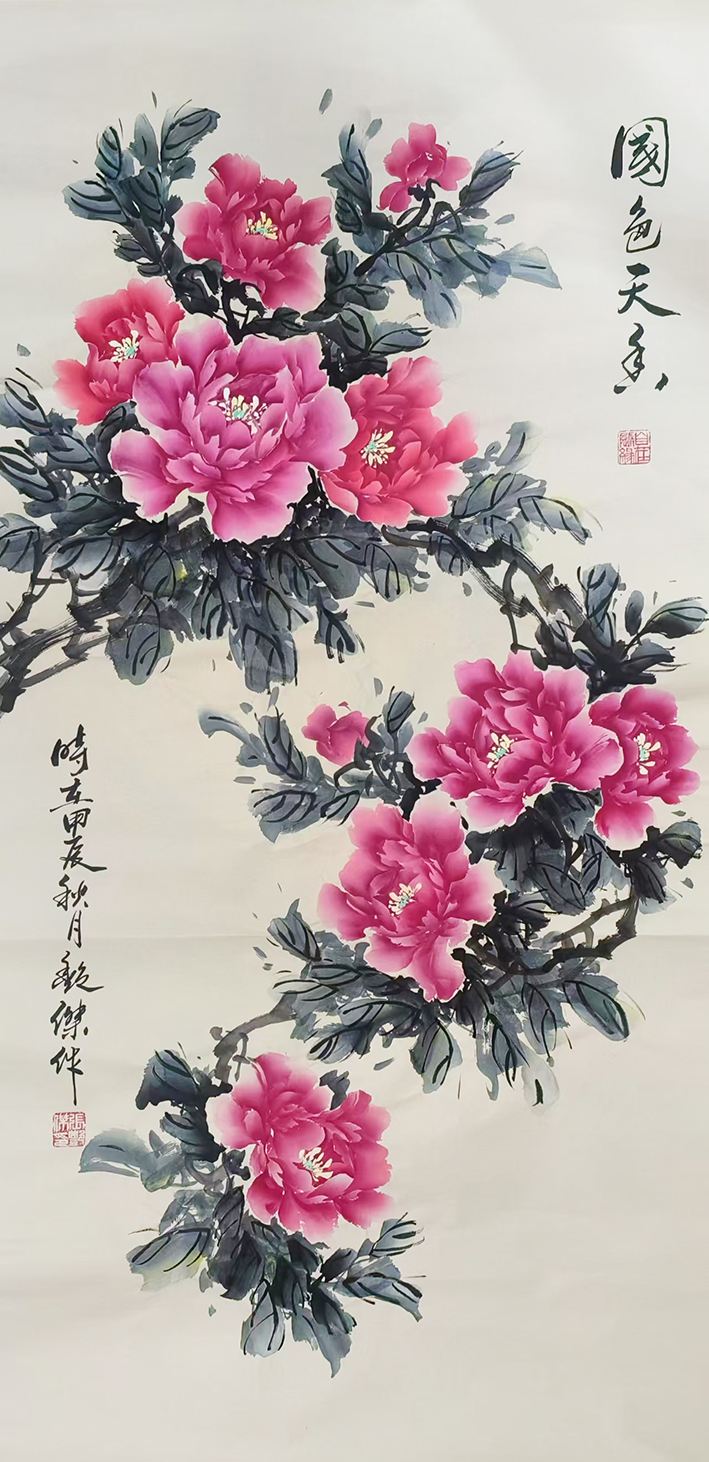 國色天香
時在甲辰秋月毅傑作